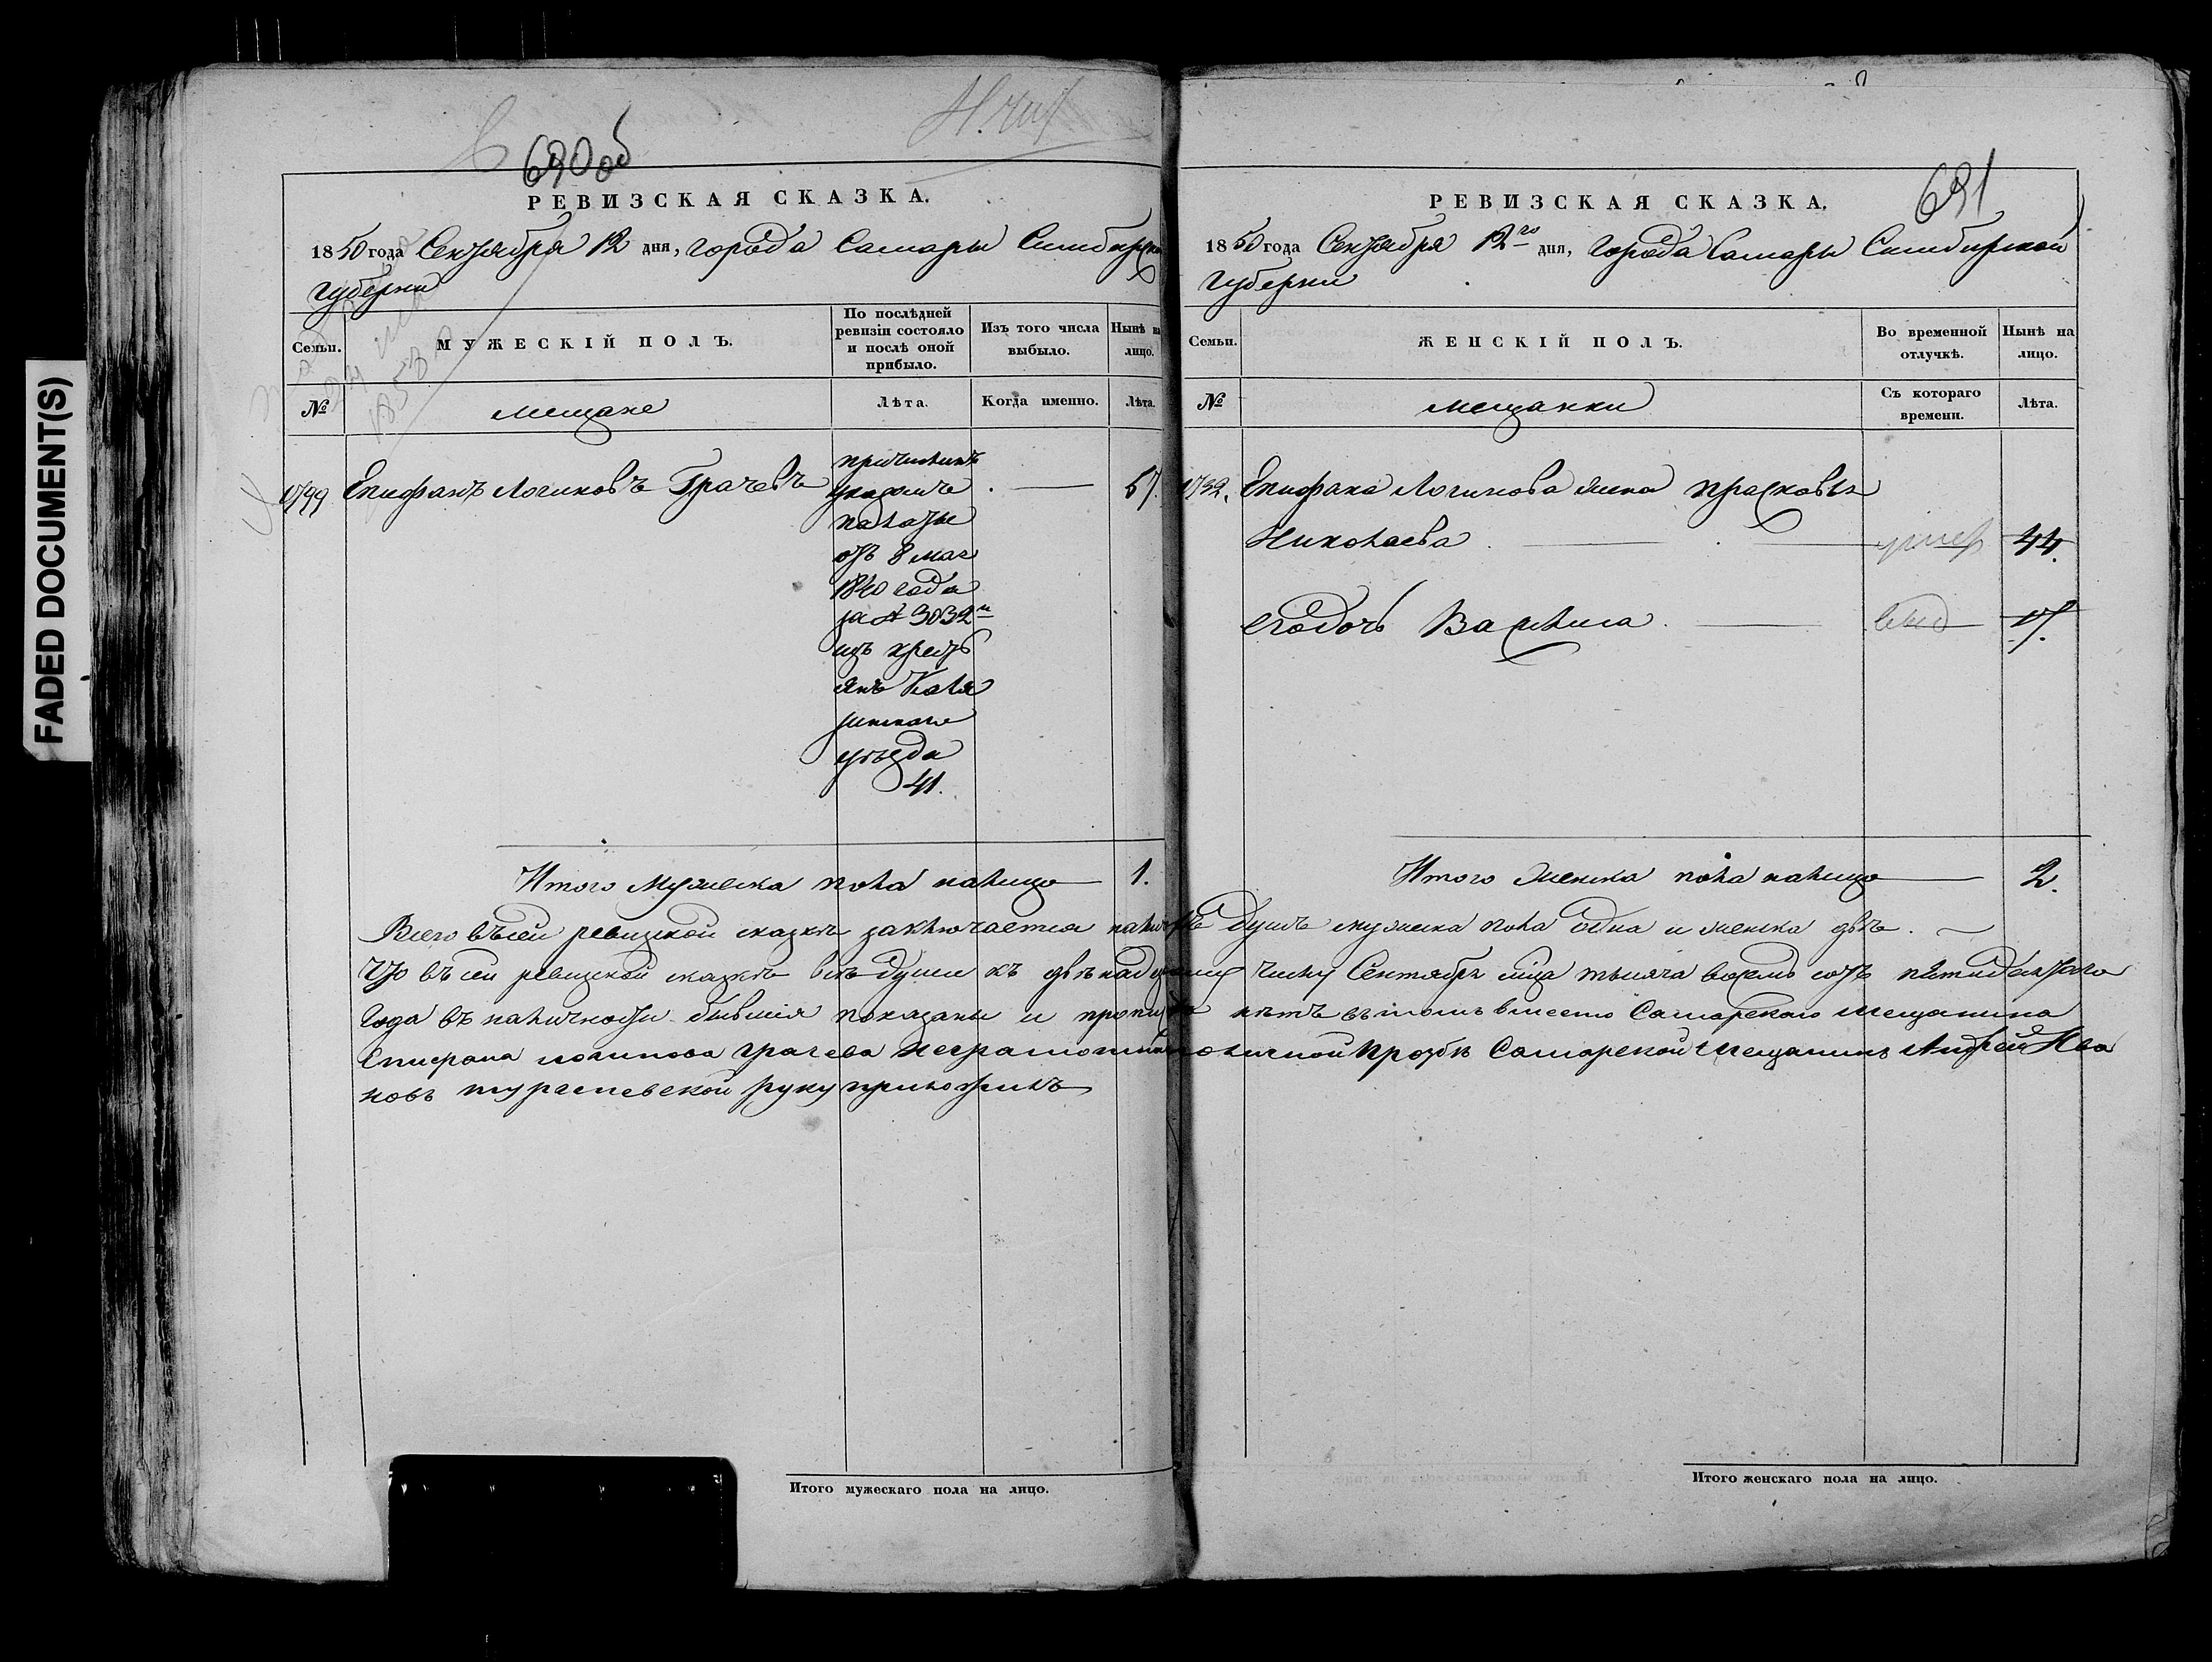 FADED DOCUMENT(S)
690 об
РЕВИЗСКАЯ СКАЗКА.
1850 года Сентября 12 дня, города Самары Симбирской
губерни
Семьи.
МУЖЕСКІЙ ПОЛЪ.
По послѣдней
ревизіи состояло
и послѣ оной
прибыло.
Изъ того числа
выбыло.
Нынѣ на
лицо.
№
мещане
Лѣта.
Когда именно.
Лѣта.
Епифанъ Логиновъ Грачевъ
причисленъ
указомъ
палаты
отъ 8 мая
1840 года
за № 3032м
изъ кресть
янъ Каля
зинскаго
уѣзда
41.
51.
Итого Мужеска пола налицо 1.
691
РЕВИЗСКАЯ СКАЗКА.
1850 года Сентября 12го дня, города Самары Симбирской
губерни
Семьи.
ЖЕНСКІЙ ПОЛЪ.
Во временной
отлучкѣ.
Нынѣ на
лицо.
№
мещанки
Съ котораго
времени.
Лѣта.
Епифана Логинова жена Прасковья
Николаева умер 44.
его дочь Василиса выб 17.
Итого Женска пола налицо 2.
Всего въ сей ревизкой сказкѣ заключается наличныхъ душъ мужеска пола одна и женска двѣ.
Что въ сей ревизской сказкѣ всѣ души къ двѣнадцатому числу Сентября мѣца тысяча восемь сотъ пятидесятого
года въ наличности бывшия показаны и пропуска нѣтъ въ томъ вместо Самарскаго мещанина
Епифана логинова грачева неграмотнаго по личной прозбѣ Самарской мещанинъ Андрей Ива
новъ руку приложилъ
Итого мужескаго пола на лицо.
Итого женскаго пола на лицо.